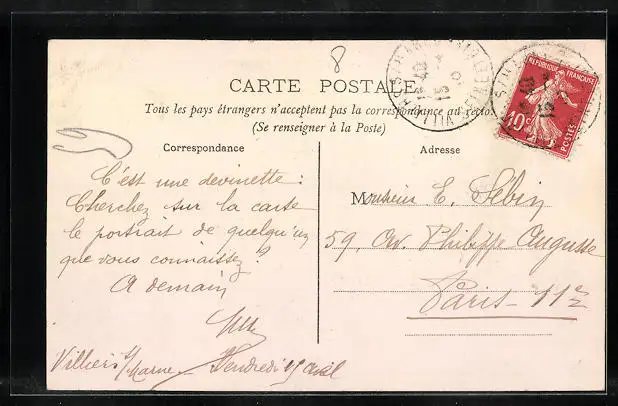 8
CARTE POSTALE
Tous les pays étrangers n'acceptent pas la correspondance au recto
(Se renseigner à la Poste)
REPUBLIQUE FRANÇAISE
10c
POSTES
Correspondance
C'est une devinette :
Cherchez sur la carte
le portrait de quelqu'un
que vous connaissez ?
A demain
Villiers s/ Marne - Vendredi 15 avril
Adresse
Monsieur E. Sebin
59, Av. Philippe Auguste
Paris - 11e